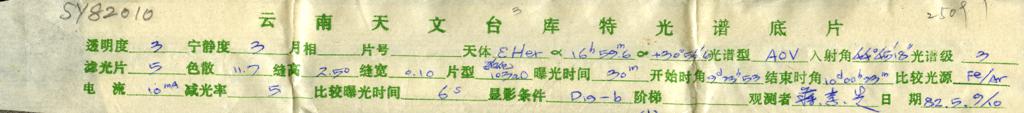 SY82010 云南天文台库特光谱底片 2509
透明度 3 宁静度 3 月相 片号 天体 ε Her α 16ʰ59ᵐ6 α +30°56′ 光谱型 A0V 入射角 66°65′18″ 光谱级 3
滤光片 5 色散 11.7 缝高 2.50 缝宽 0.10 片型 103aO 曝光时间 30ᵐ 开始时角 结束时角 比较光源 Fe/Ar
电流 10ᵐᴬ 减光率 5 比较曝光时间 6ˢ 显影条件 D19-6 阶梯 观测者 日期 82.5.9/10